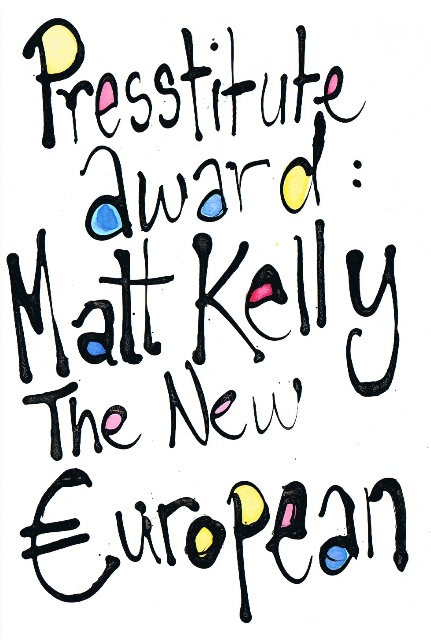 Presstitute
award:
Matt Kelly
The New
€uropean